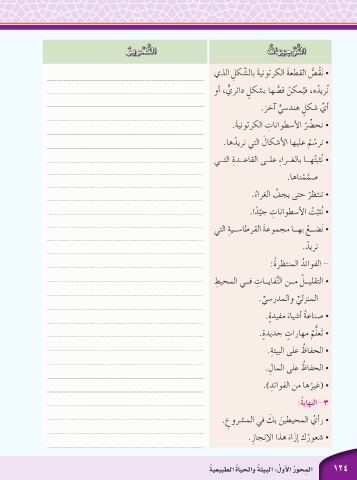 التَّوجيهاتُ
التَّصويرُ
• نَقُصُّ القطعةَ الكرتونيةَ بالشَّكلِ الذي
نُريدُه، فيُمكنُ قصُّها بشكلٍ دائريٍّ، أو
أيِّ شكلٍ هندسيٍّ آخرَ.
• نحضِّرُ الأسطواناتِ الكرتونيةَ.
• نرسُمُ عليها الأشكالَ التي نريدُها.
• نُثبِّتُها بالغراءِ على القاعدةِ التي
صمَّمْناها.
• ننتظرُ حتى يجفَّ الغراءُ.
• نُثبِّتُ الأسطواناتِ جيّدًا.
• نضعُ بها مجموعةَ القرطاسيةِ التي
نريدُ.
– الفوائدُ المنتظرةُ:
• التقليلُ من النُّفاياتِ في المحيطِ
المنزليِّ والمدرسيِّ.
• صناعةُ أشياءَ مفيدةٍ.
• تَعلُّمُ مهاراتٍ جديدةٍ.
• الحفاظُ على البيئةِ.
• الحفاظُ على المالِ.
• (غيرُها من الفوائدِ).
٣- النهايةُ:
• رأيُ المحيطينَ بكَ في المشروعِ.
• شعورُك إزاءَ هذا الإنجازِ.
١٢٤
المحورُ الأولُ: البيئةُ والحياةُ الطبيعيةُ